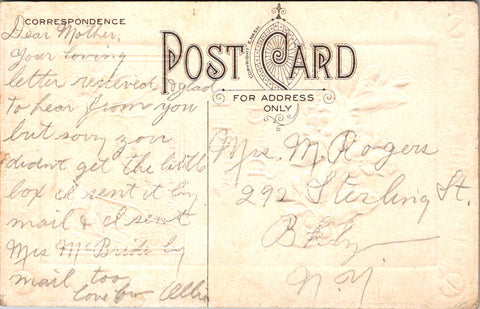 CORRESPONDENCE
Dear Mother,
Your loving
letter received & glad
to hear from you
but sorry you
didn't get the little
box I sent it by
mail & I sent
Mrs McBride by
mail too
love
POST CARD
FOR ADDRESS
ONLY
Mrs. M. Rogers
292 Sterling St.
Bklyn
N.Y.